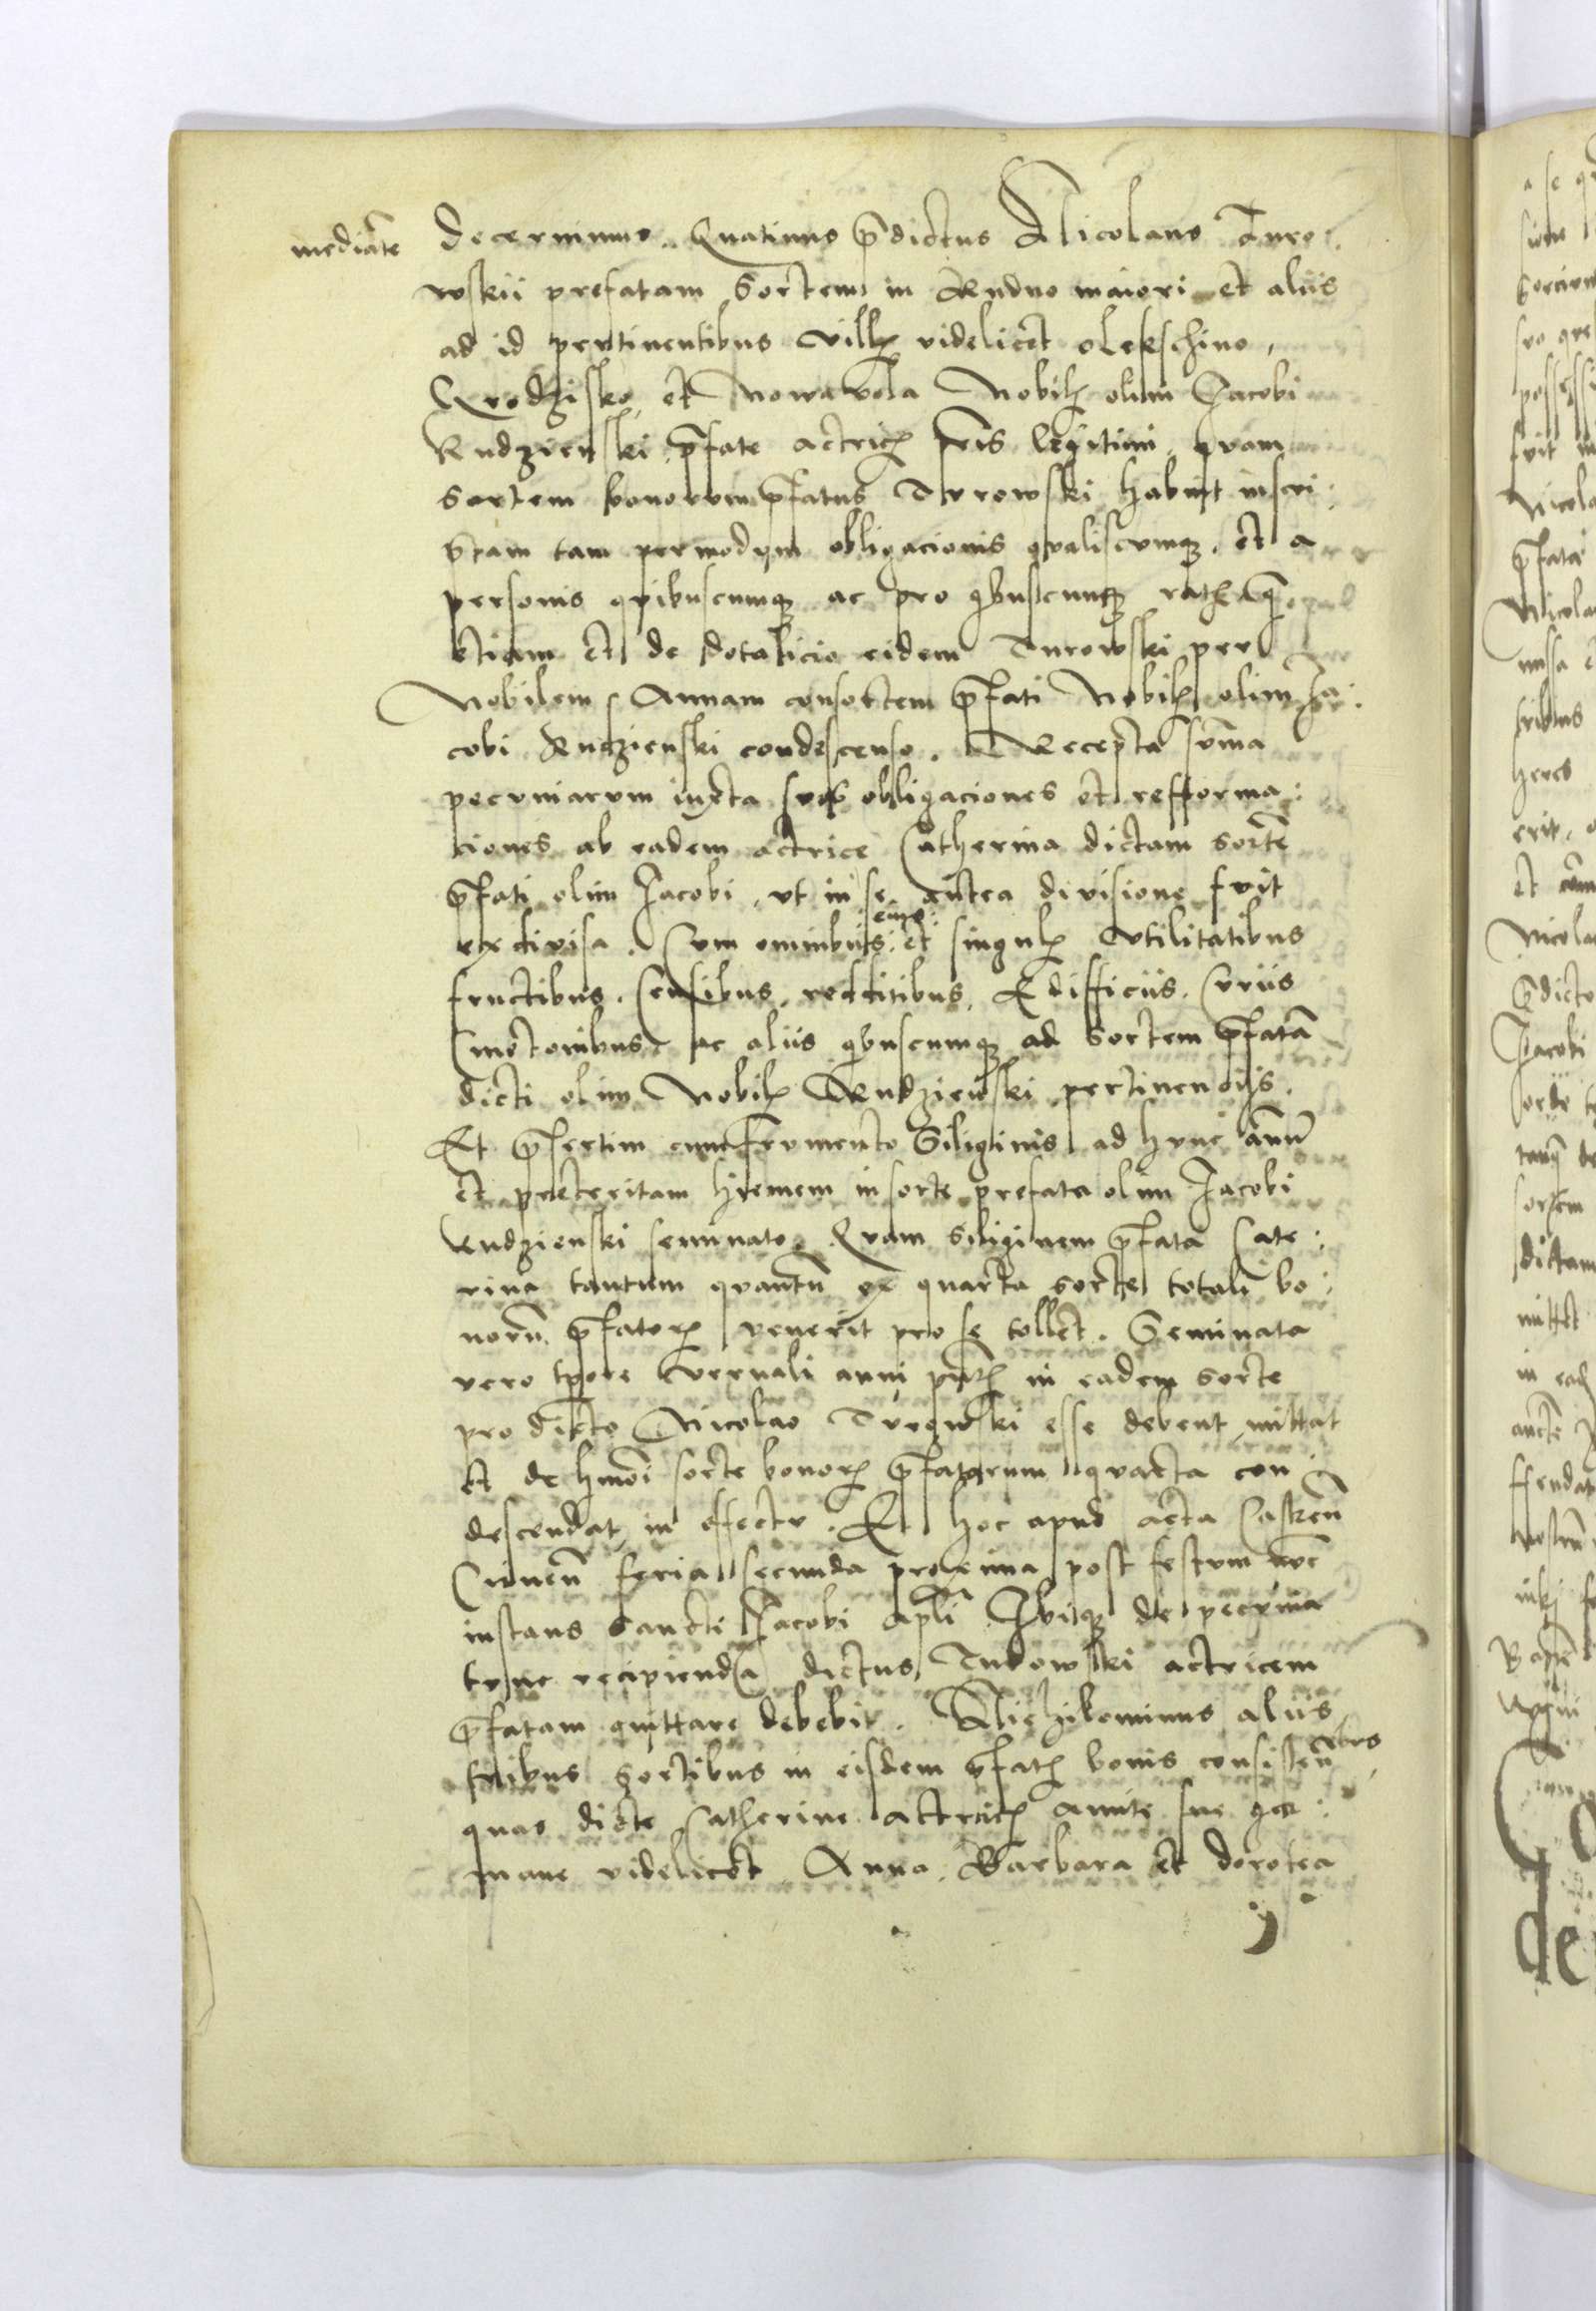 mediāte
decernimus. Quatinus p̄dictus Nicolaus Turo:
wskii prefatam Sortem in Rudno maiori et aliis
ad id pertinentibus villꝭ videlicet olekschino,
Grodzisko, et Nowawola Nobilꝭ olim Jacobi
Rudzienski p̄fate actricꝭ fr̄is legitimi, quam
sortem bonorum p̄fatus Turowski habuit inscri:
ptam tam permodum obligacionis qualiscumqꝫ, et a
personis quibuscumqꝫ ac pro qbuscumqꝫ
etiam et de dotalicio eidem Turowski per
Nobilem Annam consortem p̄fati Nobilꝭ olim Ja:
cobi Rudzienski condescenso. Recepta sūma
pecuniarum iuxta suas obligaciones et refforma:
ciones ab eadem actrice Catherina dictam sortē
p̄fati olim Jacobi, vt in se antea divisione fuit
exdivisa. Cum omnibus eius et singulꝭ Vtilitatibus
fructibus. Censibus, redditibus, Edifficiis. Curiis
Cmetonibus ac aliis qbuscumqꝫ ad Sortem p̄fatā
dicti olim Nobilꝭ Rudzienski pertinenciis.
Et p̄sertim cum frumento Siliginis ad hunc annū
et preteritam hiemem in sorte prefata olim Jacobi
Rudzienski seminato. Quam siliginem p̄fata Cate:
rina tantum quantū ex quarta sorte totali bo:
norū p̄fatorꝝ venerit pro se tollet. Seminata
vero tpore vernali anni pn̄tꝭ in eadem sorte
pro dicto Nicolao Turowski esse debent, mittat
et de hmōi sorte bonorꝝ p̄fatarum quarta con
descendat in effectu. Et hoc apud acta Castreñ
feria secunda proxima post festum nūc
instans Sancti Jacobi apli Ibiqꝫ de pecunia
tunc recipienda dictus Turowski actricem
p̄fatam quittare debebit. Nichilominus aliis
tribus sortibus in eisdem p̄fatꝭ bonis consisteñ
quas dicte Catherine actricꝭ amite sue ger:
mane videlicet Anna, Barbara et dorotea